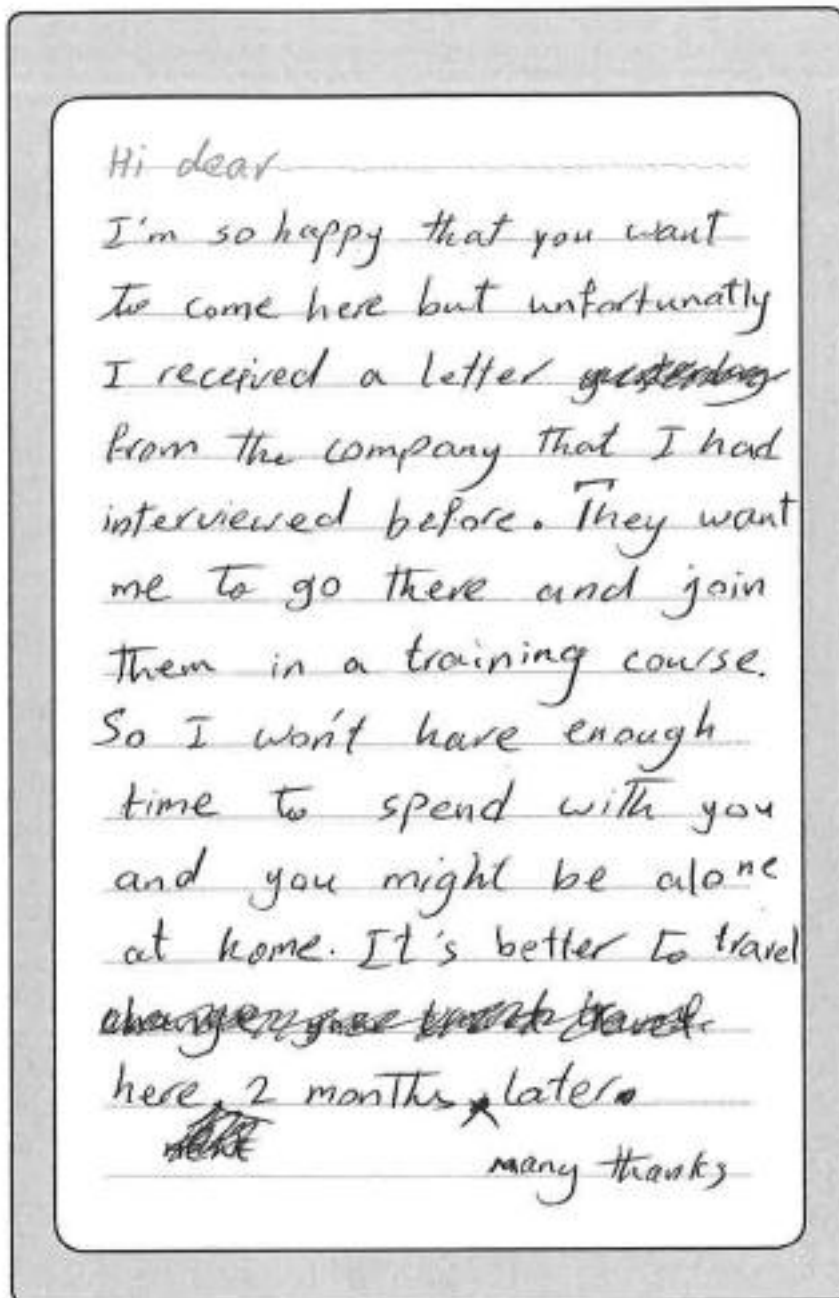 Hi dear
I'm so happy that you want
to come here but unfortunatly
I received a letter
from the company that I had
interviewed before. They want
me to go there and join
them in a training course.
So I won't have enough
time to spend with you
and you might be alone
at home. It's better to travel
here, 2 months later.
many thanks